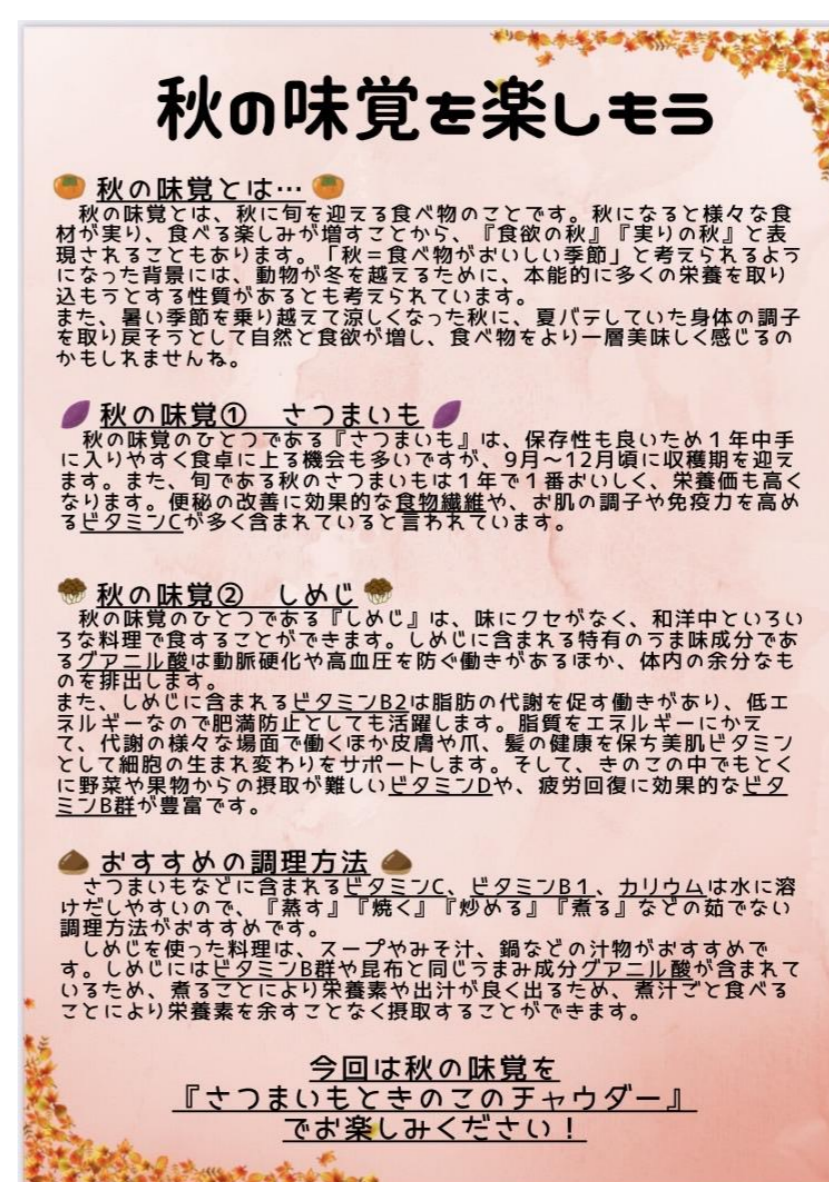 秋の味覚を楽しもう
秋の味覚とは…
秋の味覚とは、秋に旬を迎える食べ物のことです。秋になると様々な食
材が実り、食べる楽しみが増すことから、『食欲の秋』『実りの秋』と表
現されることもあります。「秋＝食べ物がおいしい季節」と考えられるよう
になった背景には、動物が冬を越えるために、本能的に多くの栄養を取り
込もうとする性質があるとも考えられています。
また、暑い季節を乗り越えて涼しくなった秋に、夏バテしていた身体の調子
を取り戻そうとして自然と食欲が増し、食べ物をより一層美味しく感じるの
かもしれませんね。
秋の味覚①　さつまいも
秋の味覚のひとつである『さつまいも』は、保存性も良いため１年中手
に入りやすく食卓に上る機会も多いですが、9月～12月頃に収穫期を迎え
ます。また、旬である秋のさつまいもは１年で１番おいしく、栄養価も高く
なります。便秘の改善に効果的な食物繊維や、お肌の調子や免疫力を高め
るビタミンCが多く含まれていると言われています。
秋の味覚②　しめじ
秋の味覚のひとつである『しめじ』は、味にクセがなく、和洋中といろい
ろな料理で食することができます。しめじに含まれる特有のうま味成分であ
るグアニル酸は動脈硬化や高血圧を防ぐ働きがあるほか、体内の余分なも
のを排出します。
また、しめじに含まれるビタミンB2は脂肪の代謝を促す働きがあり、低エ
ネルギーなので肥満防止としても活躍します。脂質をエネルギーにかえ
て、代謝の様々な場面で働くほか皮膚や爪、髪の健康を保ち美肌ビタミン
として細胞の生まれ変わりをサポートします。そして、きのこの中でもとく
に野菜や果物からの摂取が難しいビタミンDや、疲労回復に効果的なビタ
ミンB群が豊富です。
おすすめの調理方法
さつまいもなどに含まれるビタミンC、ビタミンB１、カリウムは水に溶
けだしやすいので、『蒸す』『焼く』『炒める』『煮る』などの茹でない
調理方法がおすすめです。
しめじを使った料理は、スープやみそ汁、鍋などの汁物がおすすめで
す。しめじにはビタミンB群や昆布と同じうまみ成分グアニル酸が含まれて
いるため、煮ることにより栄養素や出汁が良く出るため、煮汁ごと食べる
ことにより栄養素を余すことなく摂取することができます。
今回は秋の味覚を
『さつまいもときのこのチャウダー』
でお楽しみください！